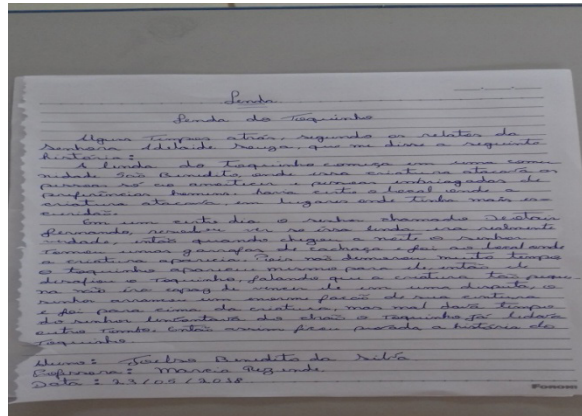 Lenda
Lenda do Toquinho
Alguns tempos atrás, segundo os relatos da
senhora Adelaide Souza, que me disse a seguinte
história:
A lenda do Toquinho começa em uma comu
nidade São Benedito, onde essa criatura atacava as
pessoas só ao anoitecer e pessoas embriagadas de
preferências homens, havia certo local onde a
criatura atacava, em lugares onde tinha mais es
curidão.
Em um certo dia o senhor chamado
Fernando, resolveu ver se essa lenda era realmente
verdade, então quando chegou a noite o senhor
tomou uma garrafa de cachaça e foi ao local onde
a criatura aparecia. Pois não demorou muito tempo
o toquinho apareceu mesmo para ele, então ele
desafiou o Toquinho, falando que a criatura tão peque
na não era capaz de vencer ele em uma disputa, o
senhor arrancou um enorme facão de sua cintura
e foi para cima da criatura, mas mal dava tempo
do senhor levantava do chão o Toquinho já
outro tombo. Então assim ficou a história do
Toquinho.
Aluno: Benedito da Silva
Professora: Marcia Rezende
Data: 23/05/2018